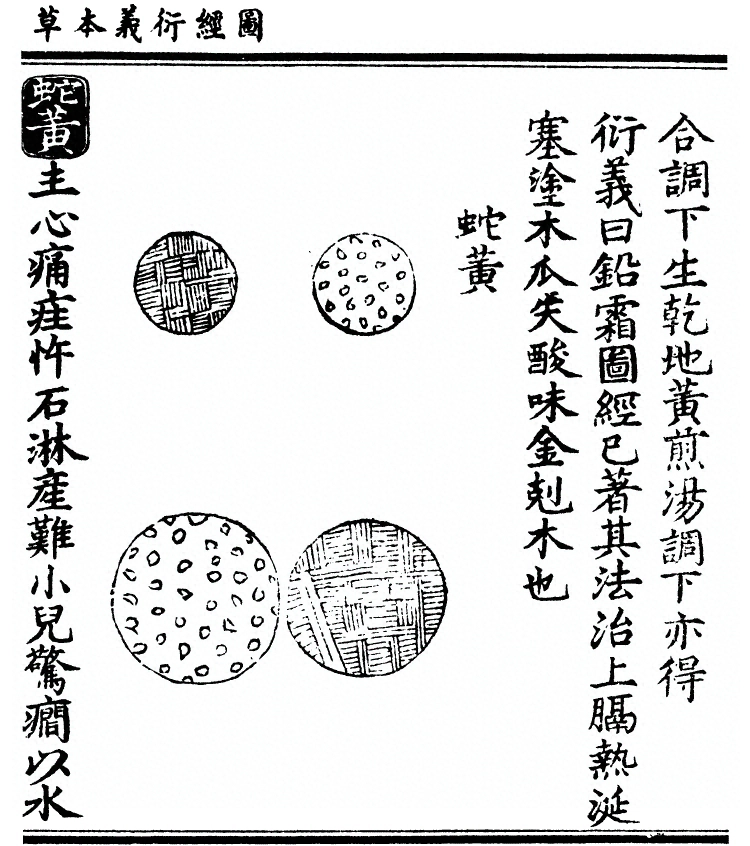 圖經衍義本草
合調下生乾地黃煎湯調下亦得
衍義曰鉛霜圖經已著其法治上膈熱涎
塞塗木瓜失酸味金剋木也
蛇黃
蛇黃主心痛疰忤石淋產難小兒驚癇以水